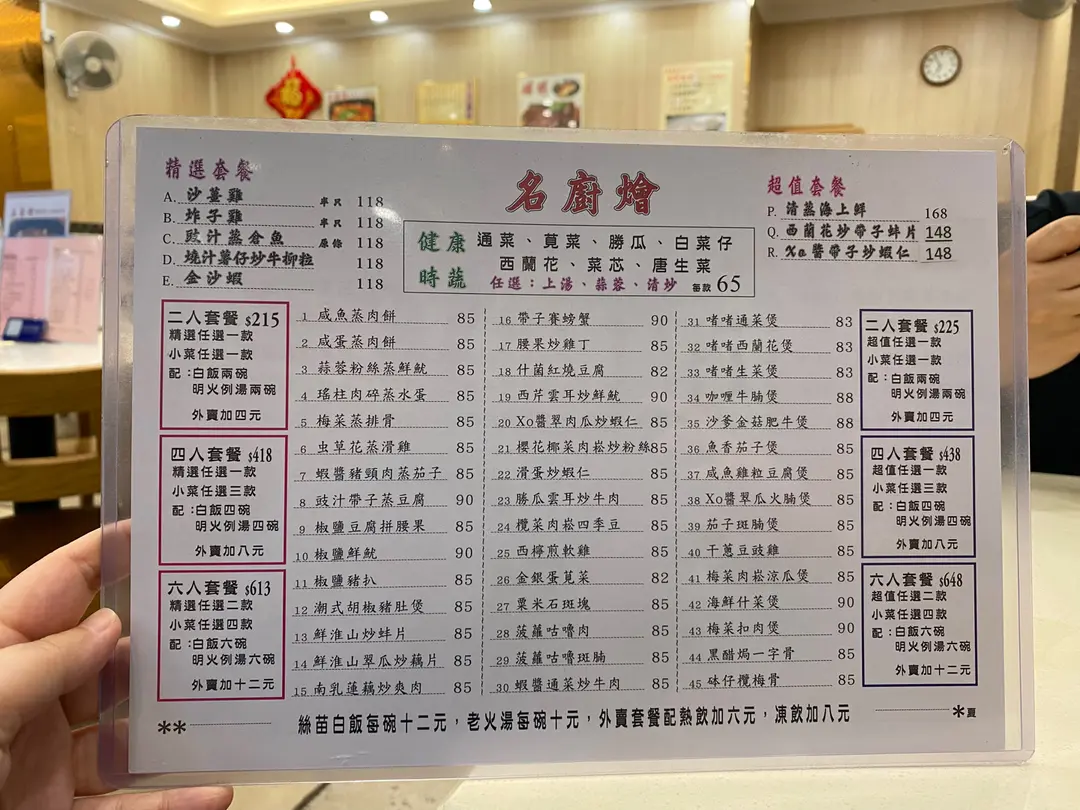 精選套餐
A. 沙薑雞 半只 118
B. 炸子雞 半只 118
C. 豉汁蒸倉魚 原條 118
D. 燒汁薯仔炒牛柳粒 118
E. 金沙蝦 118
名廚燴
健康時蔬
通菜、莧菜、勝瓜、白菜仔
西蘭花、菜芯、唐生菜
任選：上湯、蒜蓉、清炒 每款 65
超值套餐
P. 清蒸海上鮮 168
Q. 西蘭花炒帶子蚌片 148
R. Xo醬帶子炒蝦仁 148
二人套餐 $215
精選任選一款
小菜任選一款
配：白飯兩碗
明火例湯兩碗
外賣加四元
四人套餐 $418
精選任選一款
小菜任選三款
配：白飯四碗
明火例湯四碗
外賣加八元
六人套餐 $613
精選任選二款
小菜任選四款
配：白飯六碗
明火例湯六碗
外賣加十二元
1 咸魚蒸肉餅 85
2 咸蛋蒸肉餅 85
3 蒜蓉粉絲蒸鮮魷 85
4 瑤柱肉碎蒸水蛋 85
5 梅菜蒸排骨 85
6 虫草花蒸滑雞 85
7 蝦醬豬頸肉蒸茄子 85
8 豉汁帶子蒸豆腐 90
9 椒鹽豆腐拼腰果 85
10 椒鹽鮮魷 90
11 椒鹽豬扒 85
12 潮式胡椒豬肚煲 85
13 鮮淮山炒蚌片 85
14 鮮淮山翠瓜炒藕片 85
15 南乳蓮藕炒爽肉 85
16 帶子賽螃蟹 90
17 腰果炒雞丁 85
18 什菌紅燒豆腐 82
19 西芹雲耳炒鮮魷 90
20 Xo醬翠肉瓜炒蝦仁 85
21 櫻花椰菜肉崧炒粉絲 85
22 滑蛋炒蝦仁 85
23 勝瓜雲耳炒牛肉 85
24 欖菜肉崧四季豆 85
25 西檸煎軟雞 85
26 金銀蛋莧菜 82
27 粟米石斑塊 85
28 菠蘿咕嚕肉 85
29 菠蘿咕嚕斑腩 85
30 蝦醬通菜炒牛肉 85
31 啫啫通菜煲 83
32 啫啫西蘭花煲 83
33 啫啫生菜煲 83
34 咖喱牛腩煲 88
35 沙爹金菇肥牛煲 88
36 魚香茄子煲 85
37 咸魚雞粒豆腐煲 85
38 Xo醬翠瓜火腩煲 85
39 茄子斑腩煲 85
40 干蔥豆豉雞 85
41 梅菜肉崧涼瓜煲 85
42 海鮮什菜煲 90
43 梅菜扣肉煲 90
44 黑醋焗一字骨 85
45 砵仔欖梅骨 85
二人套餐 $225
超值任選一款
小菜任選一款
配：白飯兩碗
明火例湯兩碗
外賣加四元
四人套餐 $438
超值任選一款
小菜任選三款
配：白飯四碗
明火例湯四碗
外賣加八元
六人套餐 $648
超值任選二款
小菜任選四款
配：白飯六碗
明火例湯六碗
外賣加十二元
** 絲苗白飯每碗十二元，老火湯每碗十元，外賣套餐配熱飲加六元，凍飲加八元 *夏